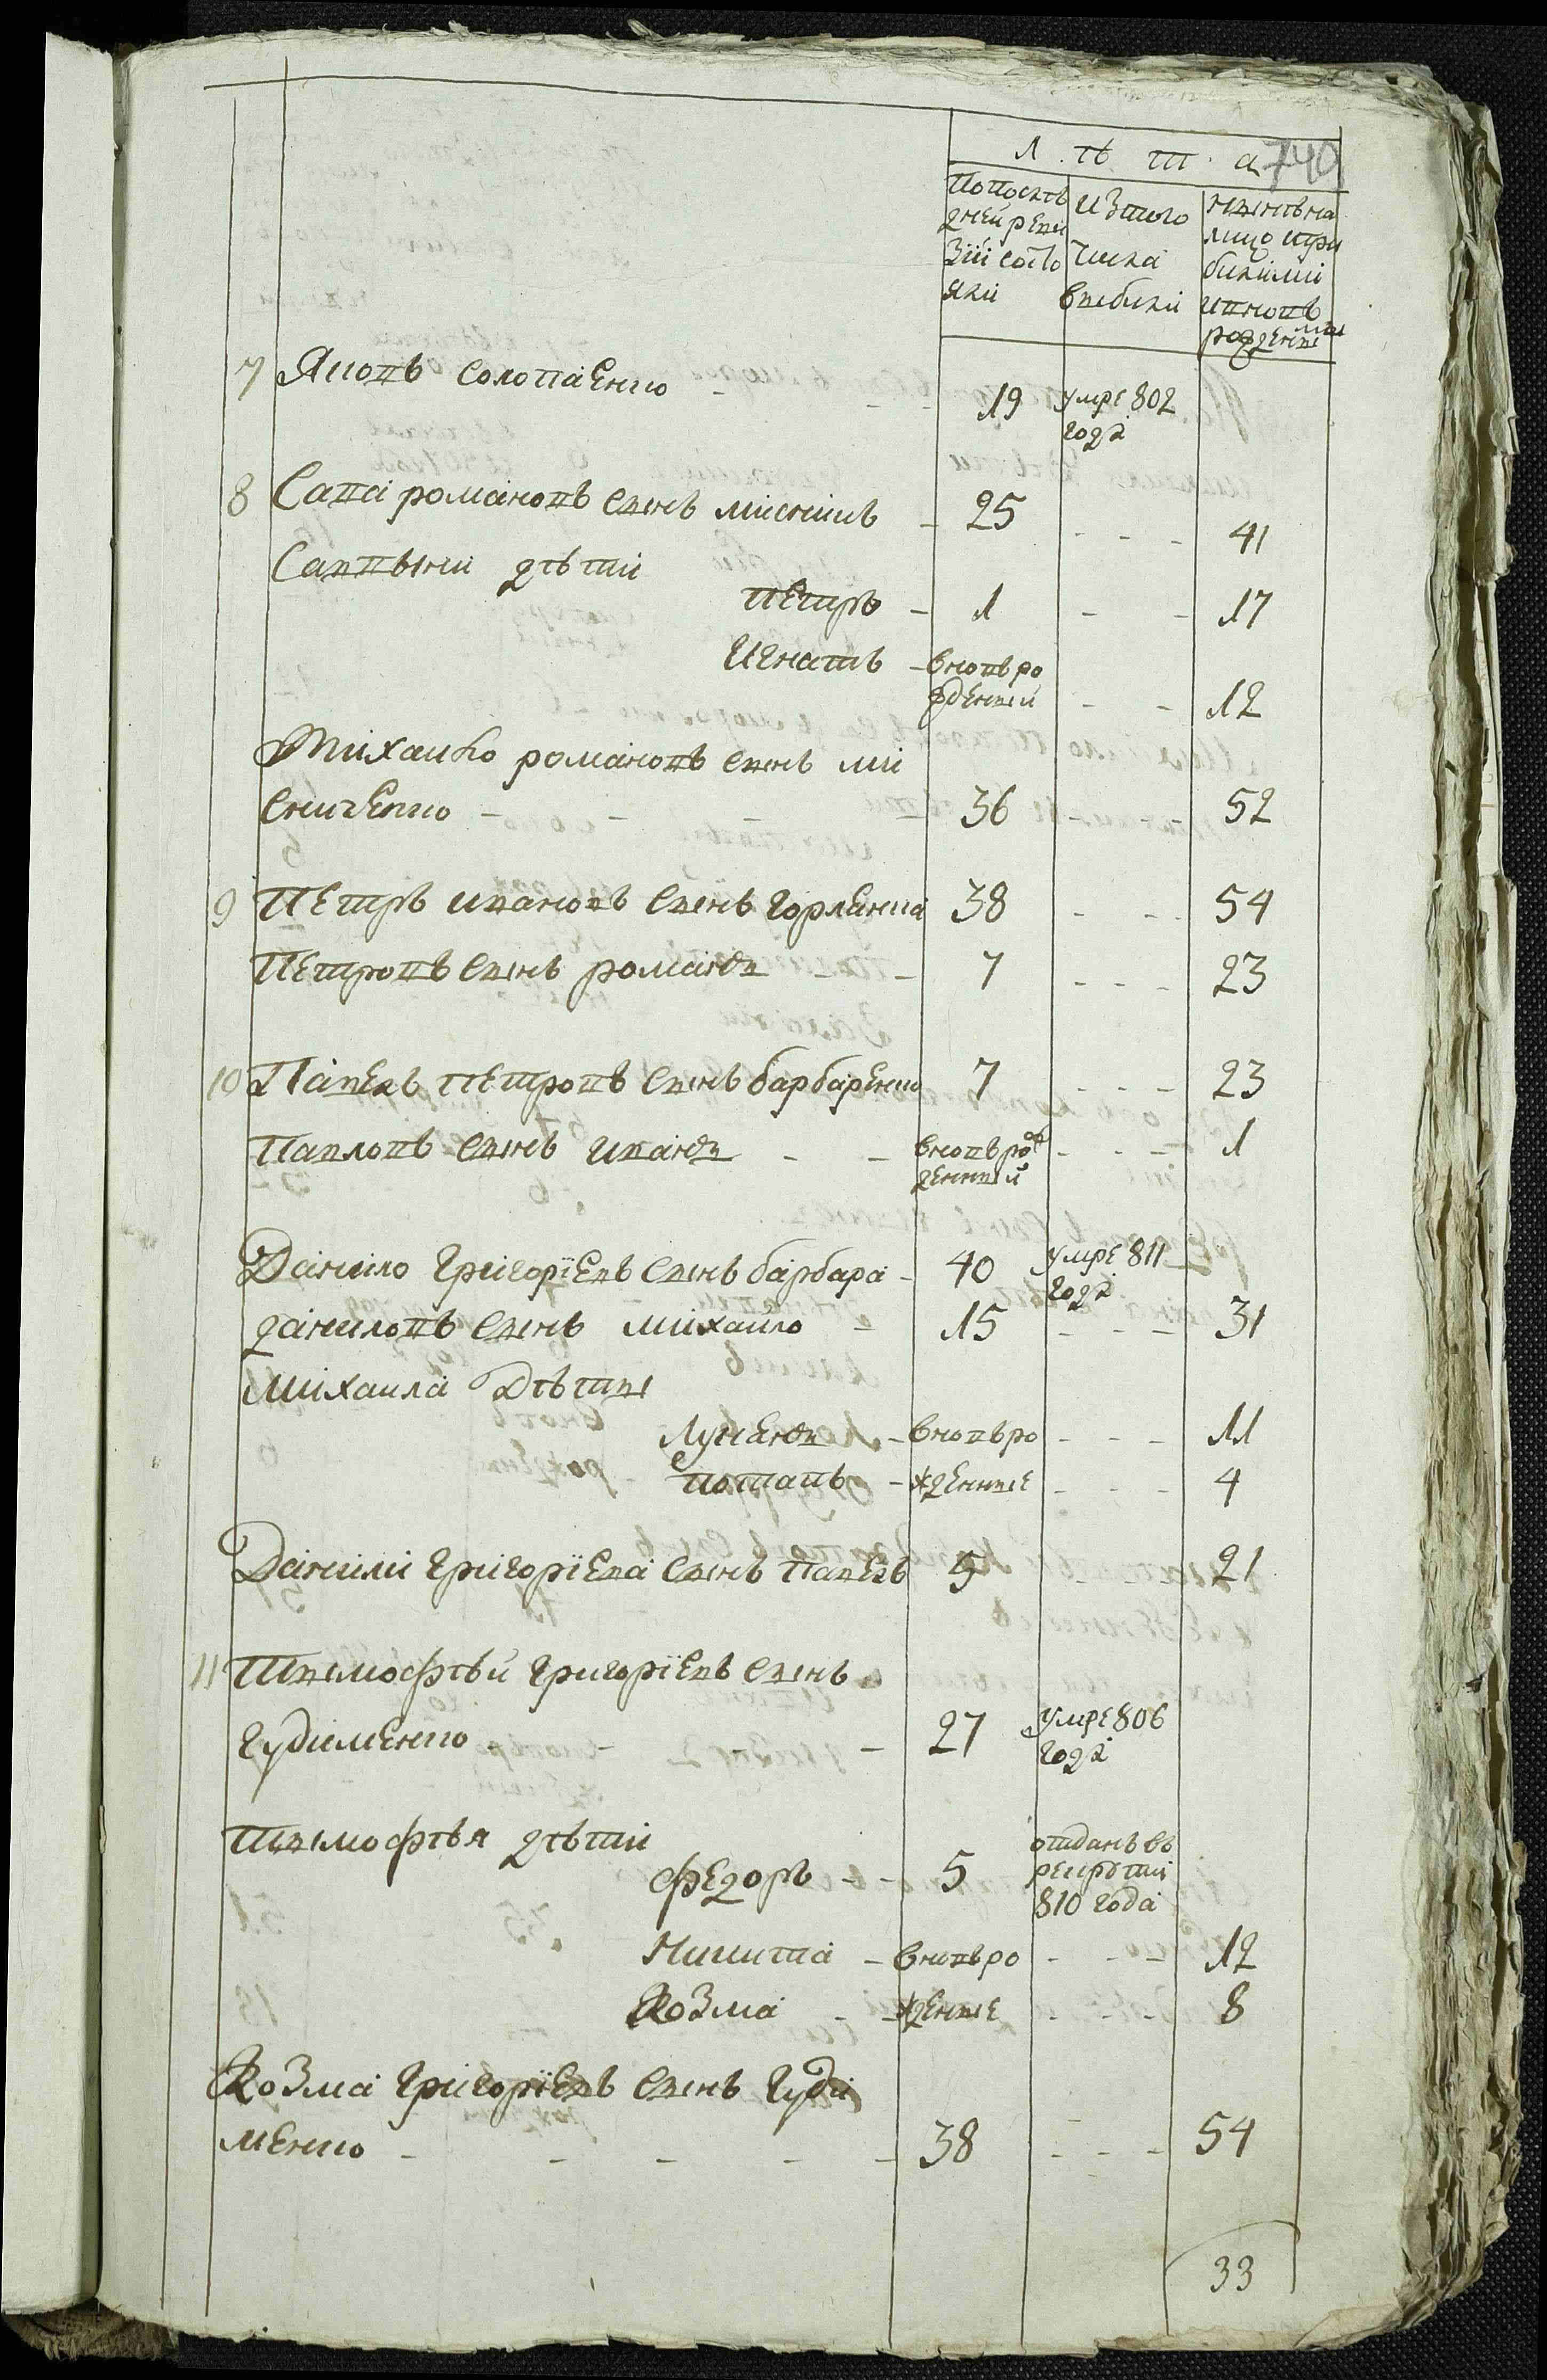 740
л ѣ т а
попослѣ
дней реви
зїи состо
яли
изтого
числа
выбыли
нынѣ на
лицо ипри
былими
иновъ
рожденны
ми
7 Яковъ Солопаенко - - - 19 умре 802
года
8 Сава романовъ сынъ мисникъ - 25 - - - 41
Саввыни дѣти
петръ - 1 - - 17
Игнатъ - вновъ ро
жденный - - 12
Михайло романовъ сынъ ми
сниченко - - - - 36 - - 52
9 Петръ ивановъ сынъ горленко 38 - - - 54
Петровъ сынъ романъ - - 7 - - - 23
10 Павелъ петровъ сынъ барбаренко 7 - - - 23
Павловъ сынъ иванъ - - вновъ рож
денный - - - 1
Данило григорїевъ сынъ барбара - 40 умре 811
года
даниловъ сынъ михайло - 15 - - - 31
михаила дѣты
Лукянъ - вновъ ро - - - 11
потапъ - жденные - - - 4
Данили григорїева сынъ павелъ 5 - - - 21
11 Тымофѣй григорїевъ сынъ
гудименко - - - 27 умре 806
года
тымофѣя дѣти
федоръ - - 5 отданъ въ
рекруты
810 года
Никита - вновъ ро - - - 12
Козма - - жденые - - - 8
Козма григорїевъ сынъ гуди
менко - - - - - 38 - - - 54
33